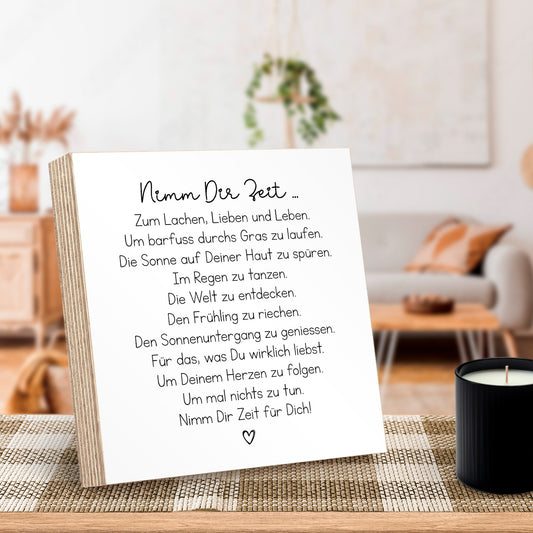 Nimm Dir Zeit ...
Zum Lachen, Lieben und Leben.
Um barfuss durchs Gras zu laufen.
Die Sonne auf Deiner Haut zu spüren.
Im Regen zu tanzen.
Die Welt zu entdecken.
Den Frühling zu riechen.
Den Sonnenuntergang zu geniessen.
Für das, was Du wirklich liebst.
Um Deinem Herzen zu folgen.
Um mal nichts zu tun.
Nimm Dir Zeit für Dich!